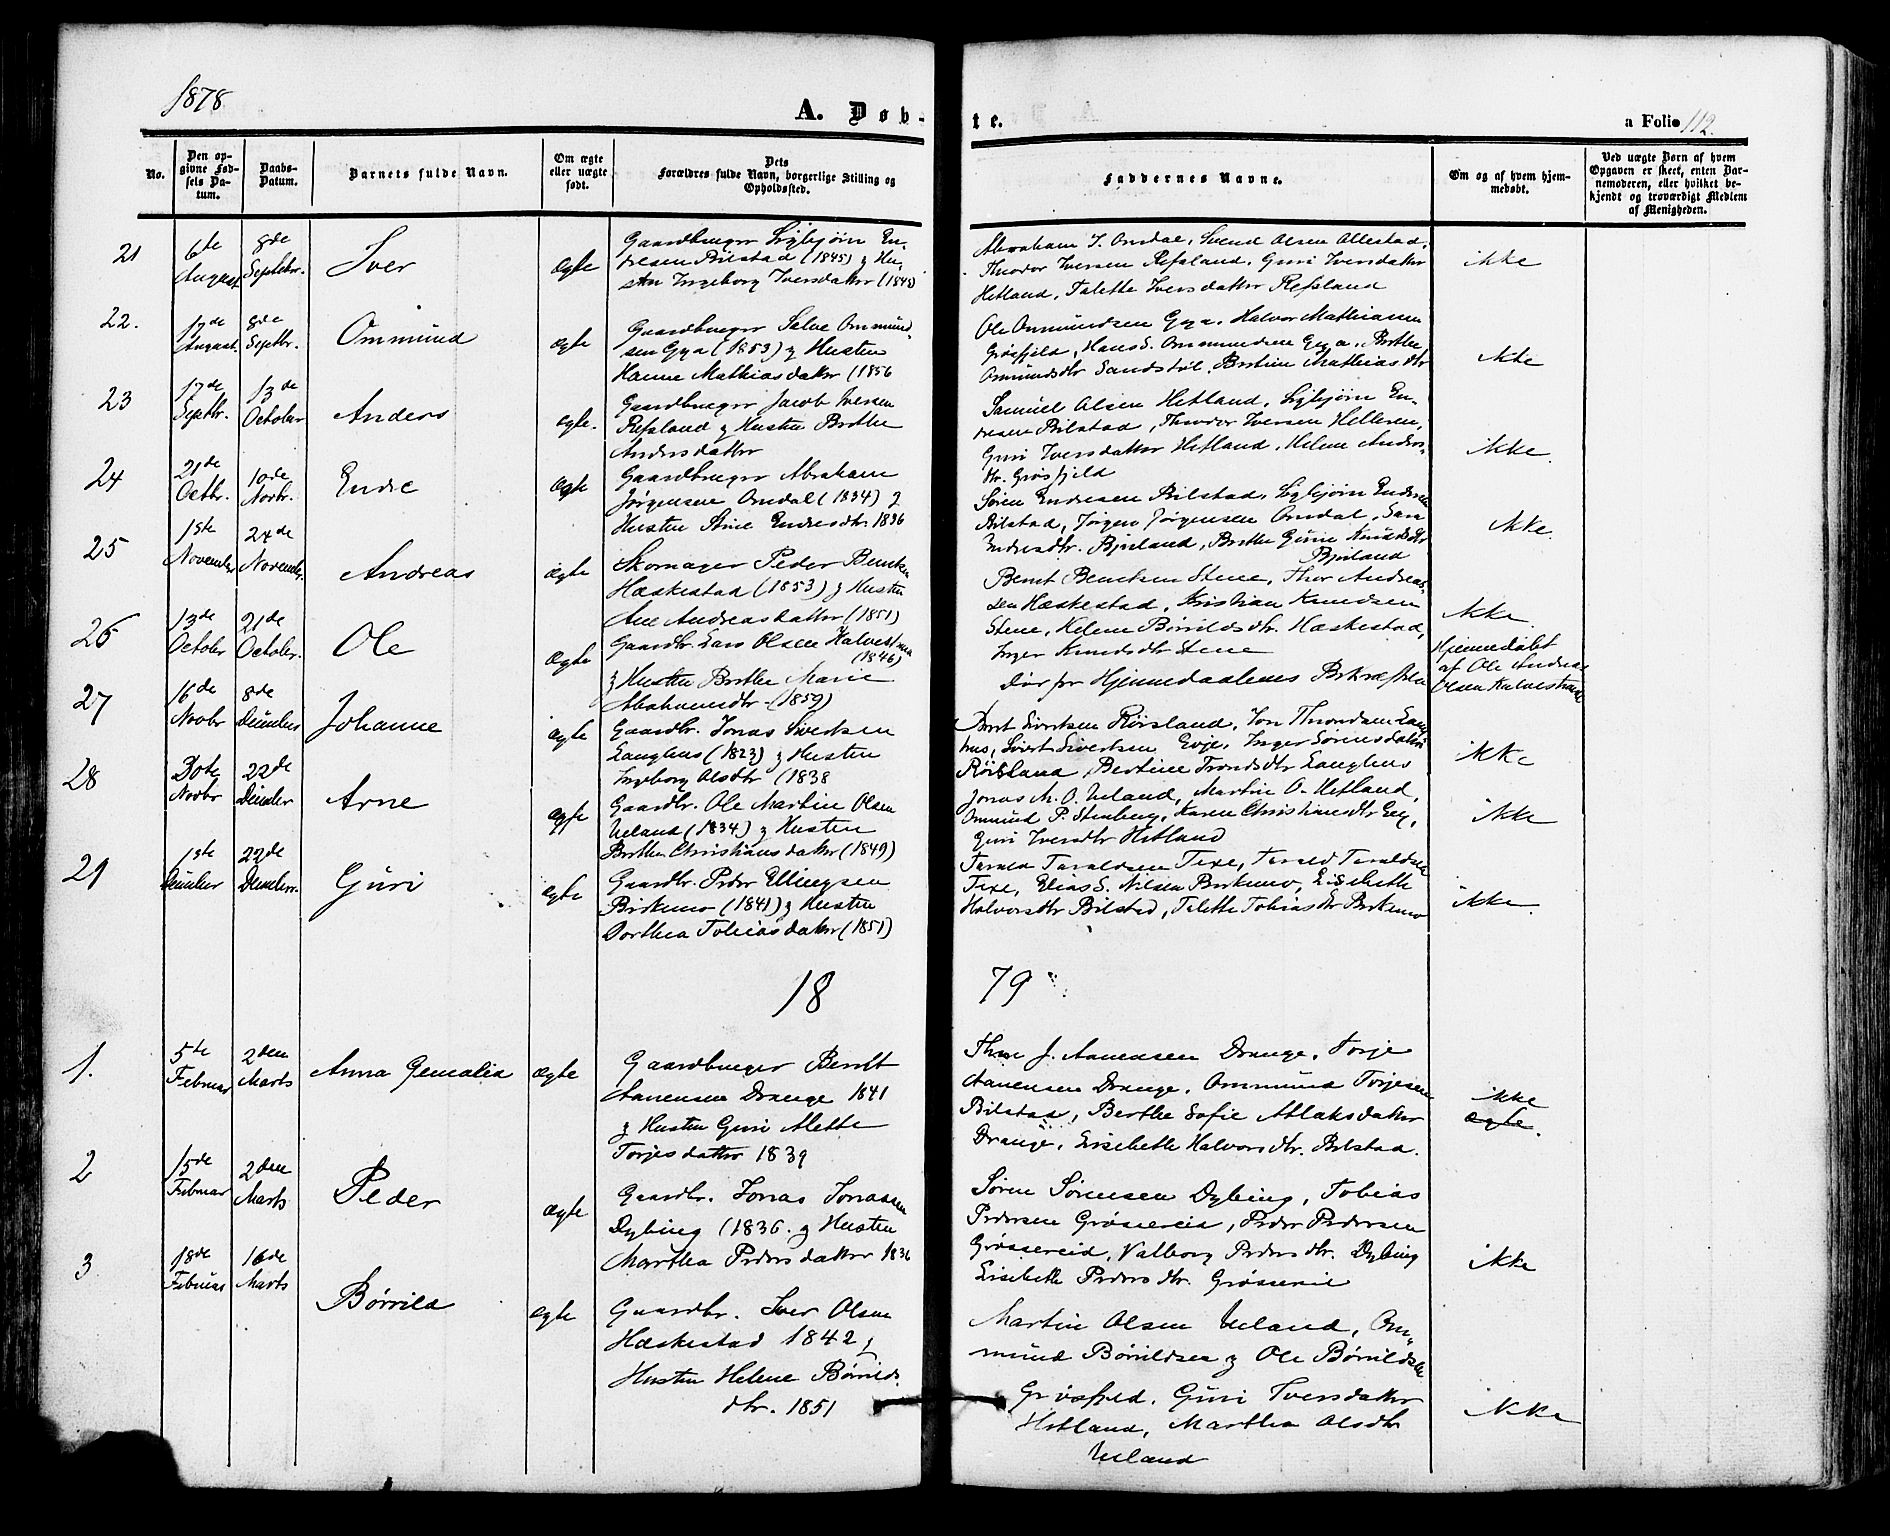 1878
A. Døb-
te.
a Folio 112.
No.
Den op-
givne Fød-
sels Da-
tum.
Daabs-
Datum.
Barnets fulde Navn.
Om ægte
eller uægte
født.
Dets
Forældres fulde Navn, borgerlige Stilling og
Opholdssted.
Faddernes Navne.
Om og af hvem hjem-
medøbt.
Ved uægte Børn af hvem
Opgaven er skeet, enten Bar-
nemoderen, eller hvilket be-
kjendt og troværdigt Medlem
af Menigheden.
21
6te
August
8de
Septbr.
Iver
ægte
Gaardbruger Sigbjørn En-
dresen Bilstad (1845) g Hu-
stru Ingeborg Iversdatter (1848)
Abraham J. Omdal, Svend Olsen Ollestad,
Theodor Iversen Refsland, Guri Iversdatter
Hetland, Talette Iversdatter Refsland
ikke
22.
17de
August.
8de
Septbr.
Ommund
ægte
Gaardbruger Salve Ommund-
sen Gya (1853) g Hustru
Hanne Mathiasdatter (1856
Ole Ommundsen Gya, Halvor Mathiasen
Grøsfjeld, Hans S. Ommundsen Gya, Berthe
Ommundsdtr Sandstøl, Bertine Mathiasdtr
ikke
23
17de
Septbr.
13de
October
Anders
ægte.
Gaardbruger Jacob Iversen
Refsland g Hustru Berthe
Andersdatter
Samuel Olsen Hetland, Sigbjørn En-
dresen Bilstad, Theodor Iversen Helleren,
Guri Iversdatter Hetland, Helene Anders-
dtr. Grøsfjeld
ikke.
24
21de
Octbr.
10de
Novbr.
Endre
ægte
Gaardbruger Abraham
Jørgensen Omdal (1834) g
Hustru Stine Endresdtr. 1836
Søren Endresen Bilstad, Sigbjørn Endresen
Bilstad, Jørgen Jørgensen Omdal, Sara
Endresdtr. Bjuland, Berthe Gurine Knudsdtr
Bjuland
ikke.
25
1ste
November
24de
November.
Andreas
ægte
Skomager Peder Bentsen
Hæskestad (1853) g Hustru
Ane Andreasdatter (1851)
Bernt Berntsen Stene, Thor Andreas-
sen Hæskestad, Kristian Knudsen
Stene, Helene Børrildsdtr. Hæskestad,
Inger Knudsdtr Stene
ikke.
26
13de
October
21de
October.
Ole
ægte
Gaardbr. Lars Olsen Halvestræa
(1846)
g Hustru Berthe Marie
Abrahamsdtr. (1859)
Død før Hjemmedaabens Bekræftelse
Hjemmedøbt
af Ole Andreas
Olsen Kalvestræa
27
16de
Novbr
8de
December
Johanne
ægte
Gaardbr. Jonas Sivertsen
Langhus (1823) g Hustru
Ingeborg Olsdtr (1838
Bernt Sivertsen Røisland, Jon Throndsen Lang
hus, Sivert Sivertsen Evje, Inger Sørensdatter
Røisland, Bertine Trondsdtr Langhus
ikke
28
30te
Novbr
22de
Dcember
Arne
ægte
Gaardbr. Ole Martin Olsen
Ueland (1834) g Hustru
Berthe Christiansdatter (1849)
Jonas M. O. Ueland, Martin O. Hetland,
Ommund P. Stenberg, Karen Christiansdtr Eeg,
Guri Iversdtr Hetland
ikke
29
1ste
December
22de
December.
Guri
ægte
Gaardbr. Peder Ellingsen
Birkemo (1841) g Hustru
Dorthea Tobiasdatter (1851)
Tarald Taraldsen Texe, Tarald Taraldsen
Texe, Elias S. Nilsen Birkemo, Lisebethe
Halvorsdtr Bilstad, Talette Tobiasdtr Birkemo
ikke.
18
79
1.
5te
Februar
2den
Marts
Anna Gemalia
ægte
Gaardbruger Berndt
Aanensen Drange 1841
g Hustru Guri Alette
Torjesdatter 1839
Thore J. Aanensen Drange, Torje
Aanensen Drange, Ommund Torjesen
Bilstad, Berthe Sofie Atlaksdatter
Drange, Lisebethe Halvorsdtr. Bilstad.
ikke
ægte.
2
15de
Februar
2den
Marts
Peder
ægte
Gaardbr. Jonas Jonassen
Dybing (1836. g Hustru
Martha Pedersdatter 1836
Søren Sørensen Dybing, Tobias
Pedersen Grøssereid, Peder Pedersen
Grøssereid, Valborg Pedersdtr. Dybing
Lisebeth Pedersdtr. Grøssereid
ikke
3
18de
Februar
16de
Marts
Børrild
ægte
Gaardbr. Iver Olsen
Hæskestad 1842 g
Hustru Helene Børrilds-
dtr. 1851
Martin Olsen Ueland, Om-
mund Børrildsen g Ole Børrildsen
Grøsfjeld, Guri Iversdatter
Hetland, Martha Olsdtr
Ueland
ikke